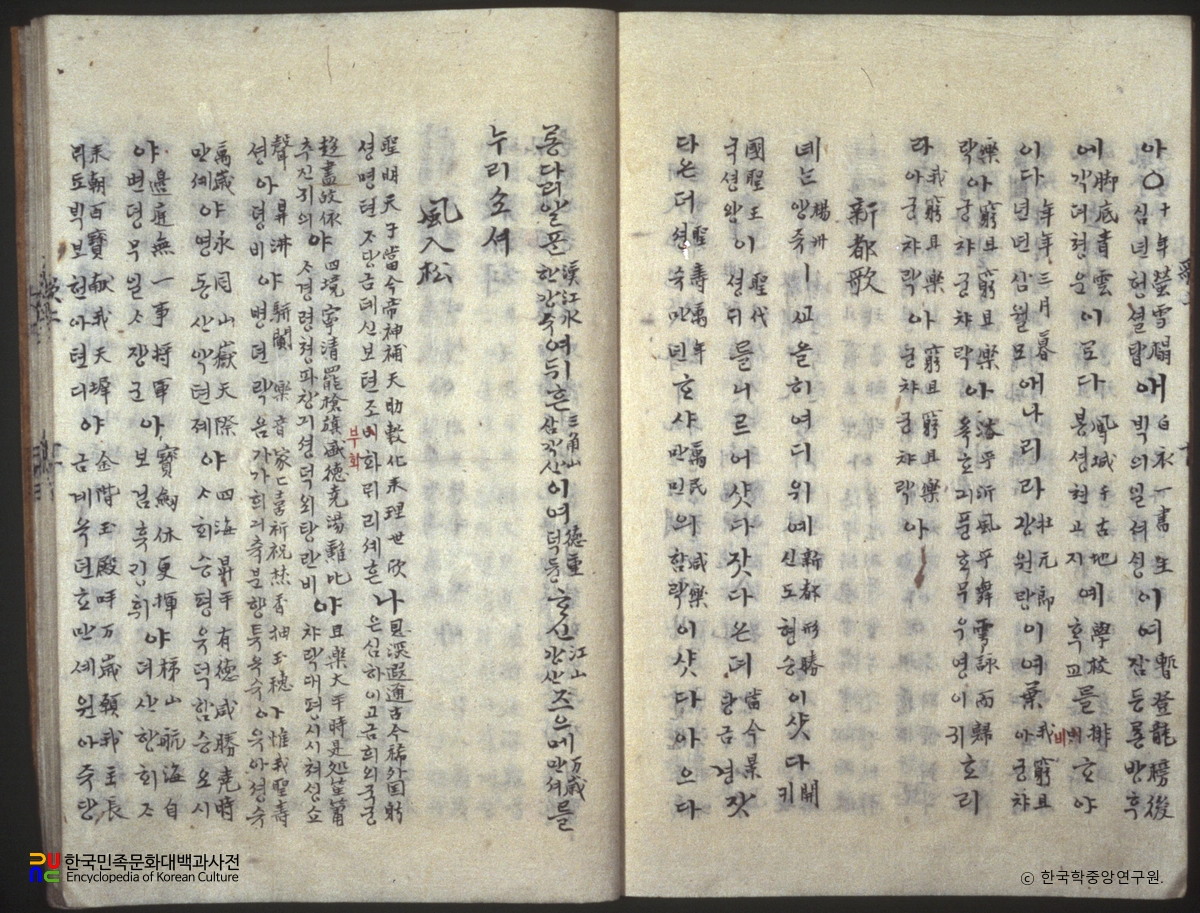 아○十年螢雪榻십년형셜탑애白衣一書生빅의일셔싱이여暫登龍榜後잠등룡방후
에脚底青雲각뎌쳥운이로다鳳城千古地봉셩쳔고지예學校학교를排ᄒᆞ야
이다年年三月暮년년삼월모애나리라壯元郎장원랑이여葉我窮且아궁챠
樂락아窮且窮且樂궁챠궁챠락아浴乎沂風乎舞雩詠而歸욕호긔풍호무우영이귀호리
라我窮且樂아궁챠락아窮且窮且樂궁챠궁챠락아
新都歌
녜ᄂᆞᆫ楊州양쥬ㅣᄭᅩ올히여디위예新都形勝신도형승이샷다開ᄀᆡ
國聖王국셩왕이聖代셩ᄃᆡ를니르어샷다잣다온뎌當今景당금경잣
다온뎌聖壽萬年셩슈만년ᄒᆞ샤萬民만민의咸樂함락이샷다아으다
롱다리알ᄑᆞᆫ漢江水한강슈여뒤흔三角山삼각산이여德重덕듕ᄒᆞ신江山강산즈으메万歲만셰를
누리쇼셔
風入松
聖明天子當今帝神補天助敷化來理世셩명텬ᄌᆞ당금뎨신보텬조부화ᄅᆡ리셰흔나恩深遐邇古今稀外国躬은심하이고금희외국궁
趍盡故依추진귀의야四境寧清罷槍旗盛德堯湯難比ᄉᆞ경령쳥파창기셩덕외탕란비야且樂大平時是処笙簫챠락대평시시쳐ᄉᆡᆼ쇼
聲셩아昇沸야騈闐병뎐樂音락음家家喜祈祝焚香抽玉穗아惟我聖壽
萬歲만셰야永同山嶽天際영동산악텬졔야四海昇平有德咸勝堯時ᄉᆞ회승평유덕함승요시
야邊庭無一事將軍변뎡무일ᄉᆞ쟝군아寶劒休更揮보검휴깅휘야梯山航海自뎨산항회ᄌᆞ
來朝百寶献我天墀야金階玉殿呼万歲願我主長
부
화
비
한국민족문화대백과사전
Encyclopedia of Korean Culture
ⓒ 한국학중앙연구원.